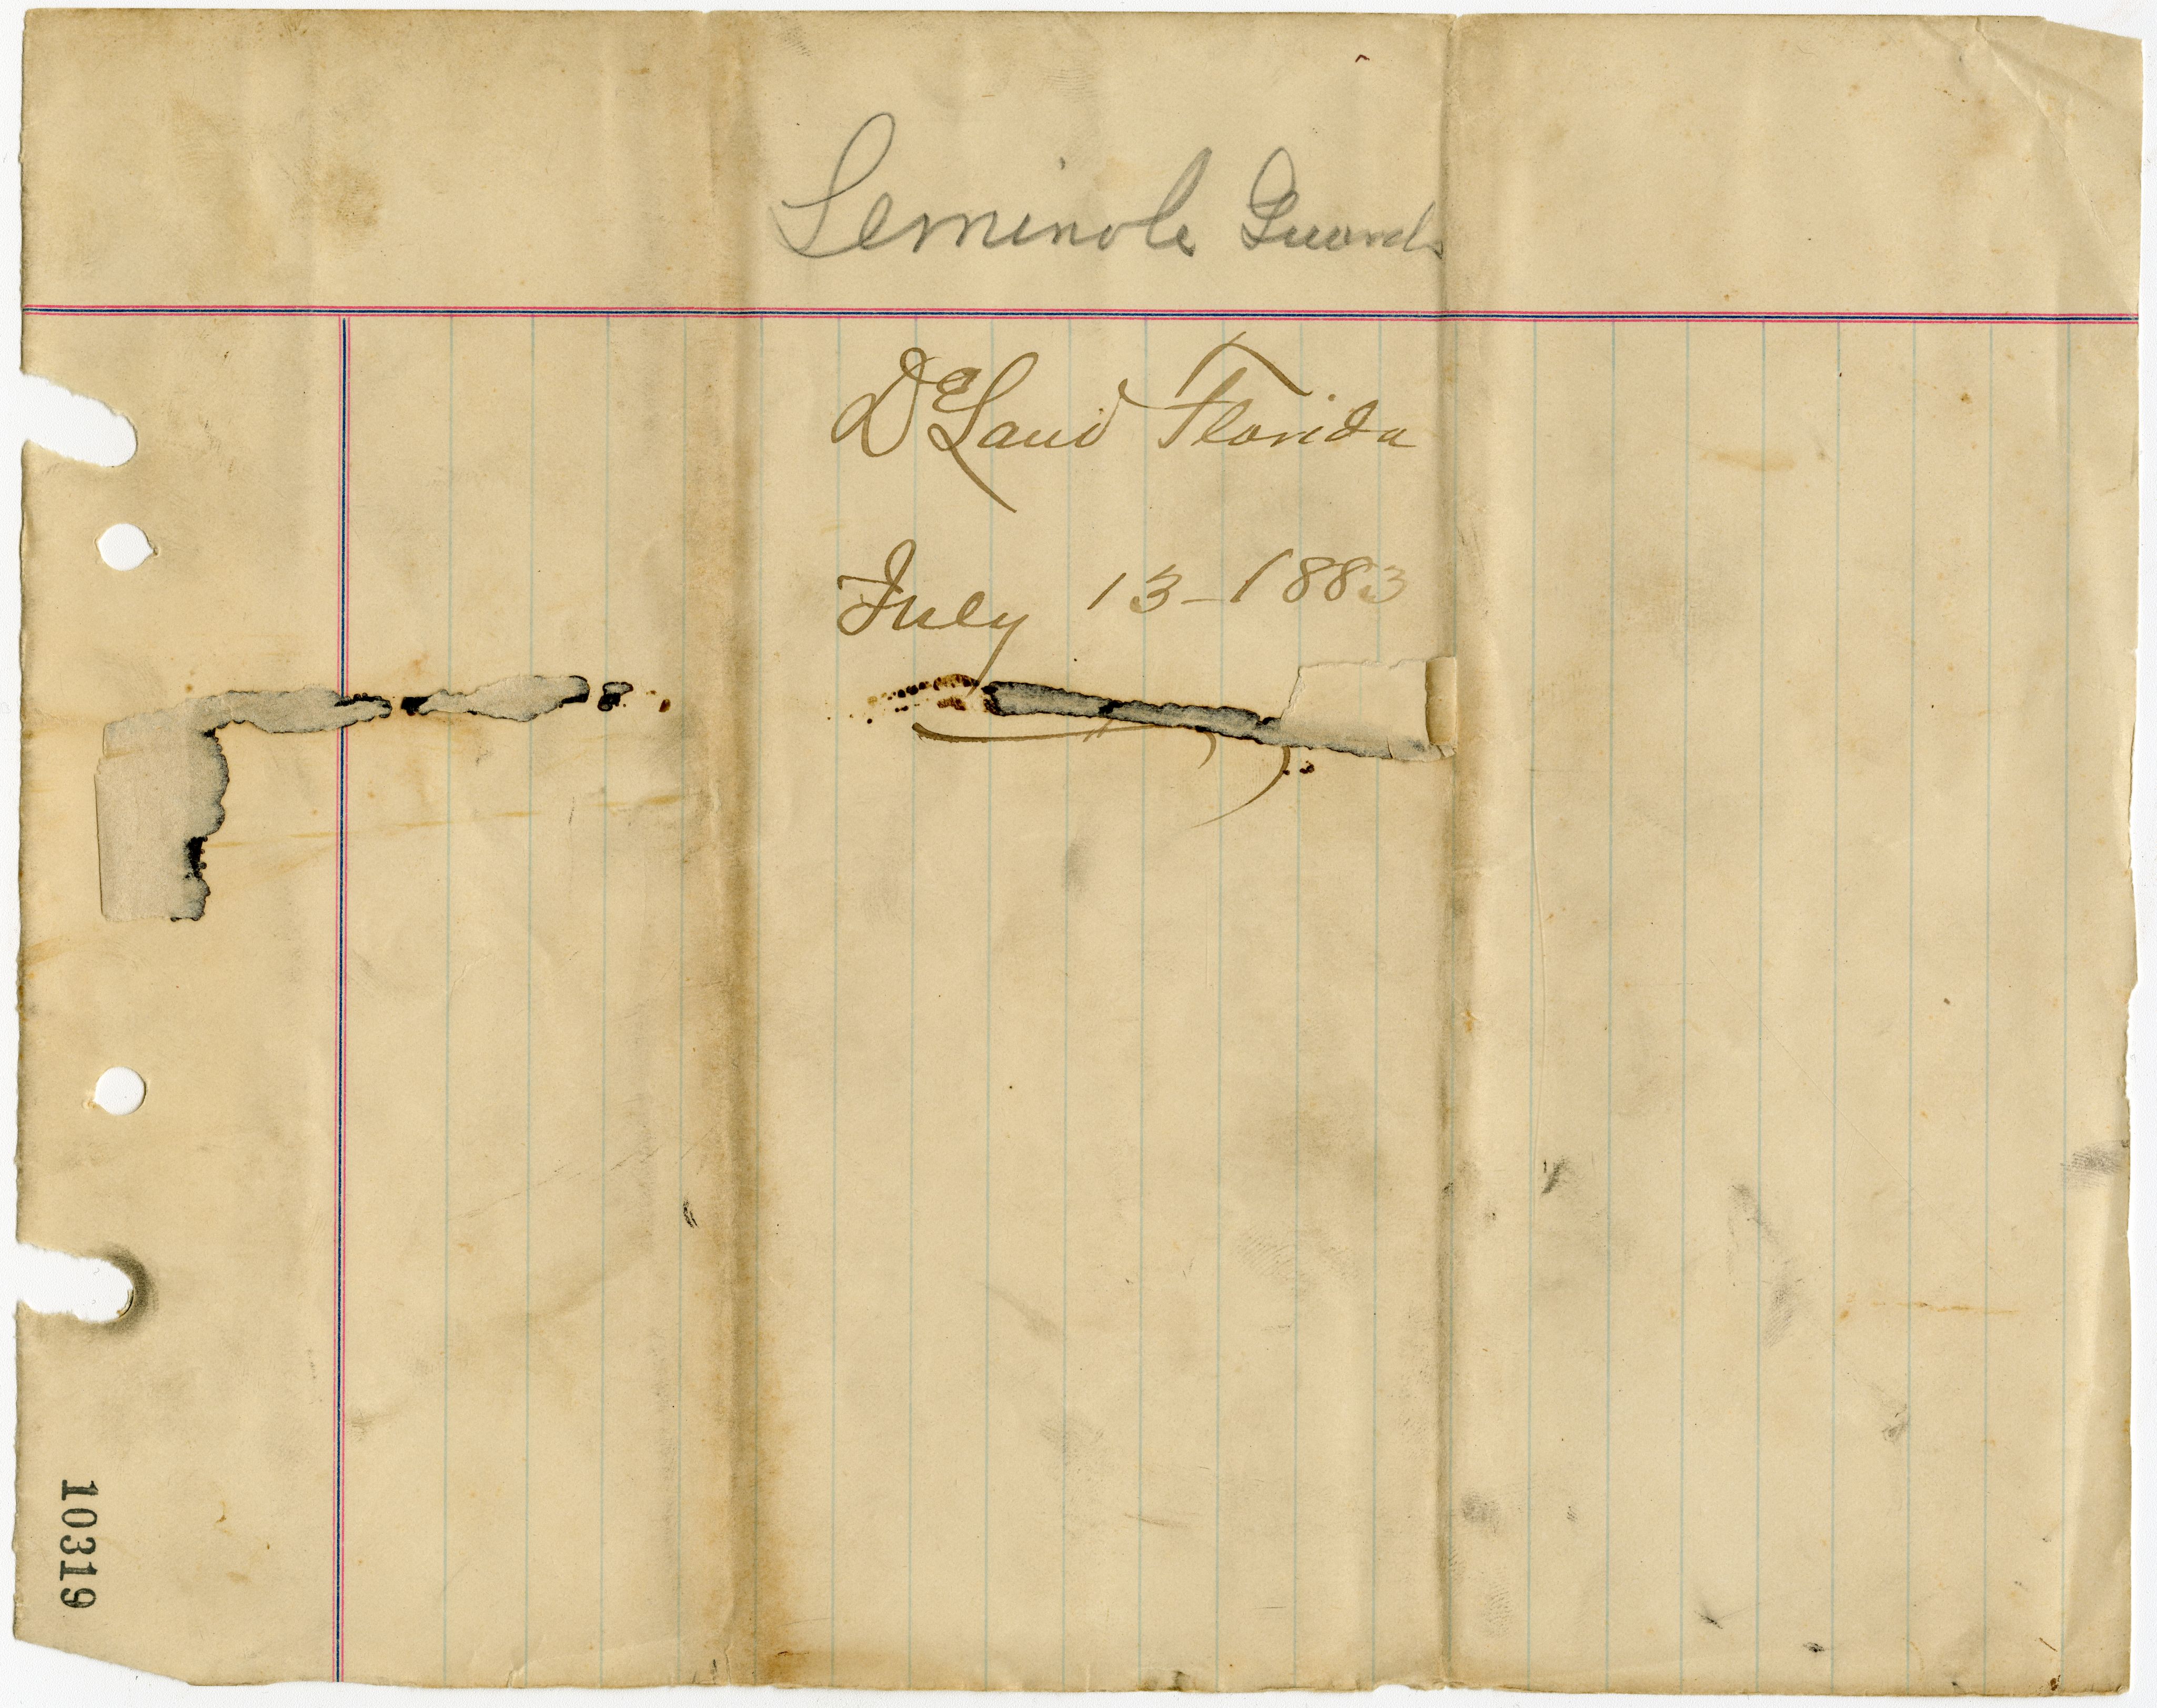 Seminole Guards
DeLand Florida
July 13-1883
10319